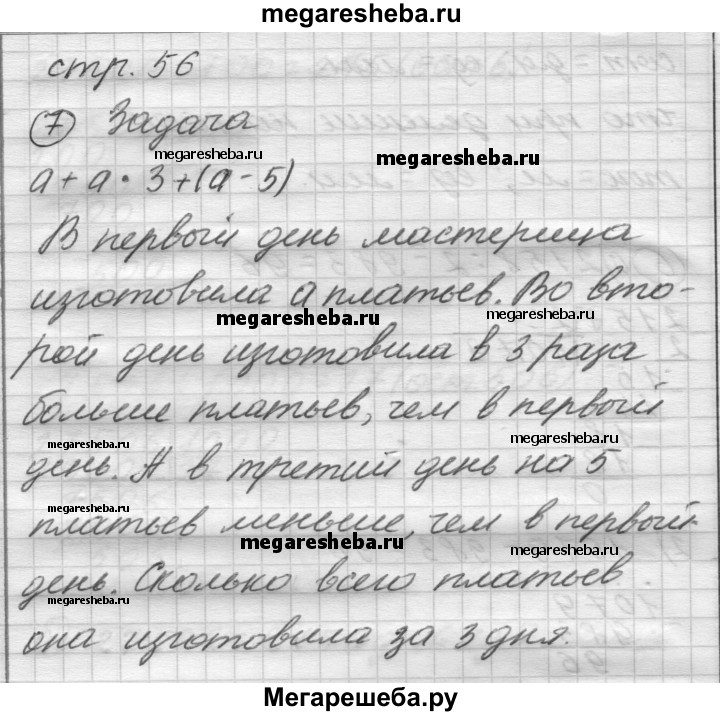 megaresheba.ru
стр. 56
7 Задача
megaresheba.ru
megaresheba.ru
а + а · 3 + (а - 5)
В первый день мастерица
изготовила а платьев. Во вто-
megaresheba.ru
рой день изготовила в 3 раза
больше платьев, чем в первый
megaresheba.ru
megaresheba.ru
день. А в третий день на 5
megaresheba.ru
платьев меньше, чем в первый
megaresheba.ru
megaresheba.ru
день. Сколько всего платьев
megaresheba.ru
она изготовила за 3 дня.
Мегарешеба.ру